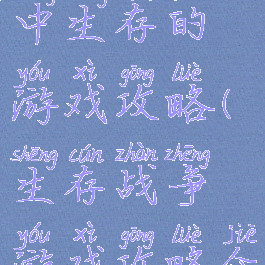 中生存的
yóu xì gōng lüè
游戏攻略(
shēng cún zhàn zhēng
生存战争
yóu xì gōng lüè jiè
游戏攻略介